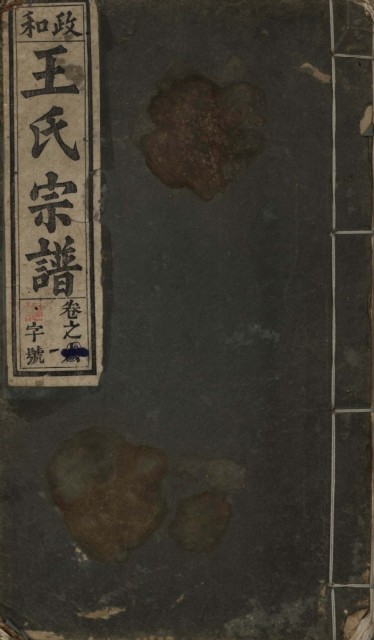 政和
王氏宗譜
卷之
字號